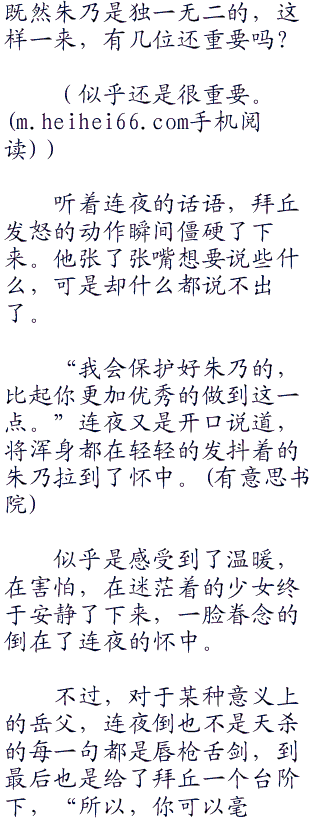 既然朱乃是独一无二的，这
样一来，有几位还重要吗？
（似乎还是很重要。
(m.heihei66.com手机阅
读)）
听着连夜的话语，拜丘
发怒的动作瞬间僵硬了下
来。他张了张嘴想要说些什
么，可是却什么都说不出
了。
“我会保护好朱乃的，
比起你更加优秀的做到这一
点。”连夜又是开口说道，
将浑身都在轻轻的发抖着的
朱乃拉到了怀中。(有意思书
院)
似乎是感受到了温暖，
在害怕，在迷茫着的少女终
于安静了下来，一脸眷念的
倒在了连夜的怀中。
不过，对于某种意义上
的岳父，连夜倒也不是天杀
的每一句都是唇枪舌剑，到
最后也是给了拜丘一个台阶
下，“所以，你可以毫